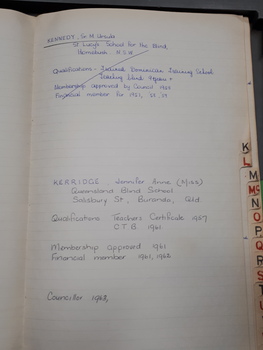 KENNEDY, Sr. M.
St Lucy's School for the Blind,
Homebush N.S.W.
Qualifications - Trained Dominican Training School
Teaching blind
Membership approved by Council 1957
Financial member for 1957, 58, 59
KERRIDGE Jennifer Anne (Miss)
Queensland Blind School
Salisbury St, Buranda, Qld.
Qualifications Teachers Certificate 1957
C.T.B. 1961
Membership approved 1961
Financial member 1961, 1962
Councillor 1963,
K
L
M
Mc
N
O
P
Q
R
S
T
U